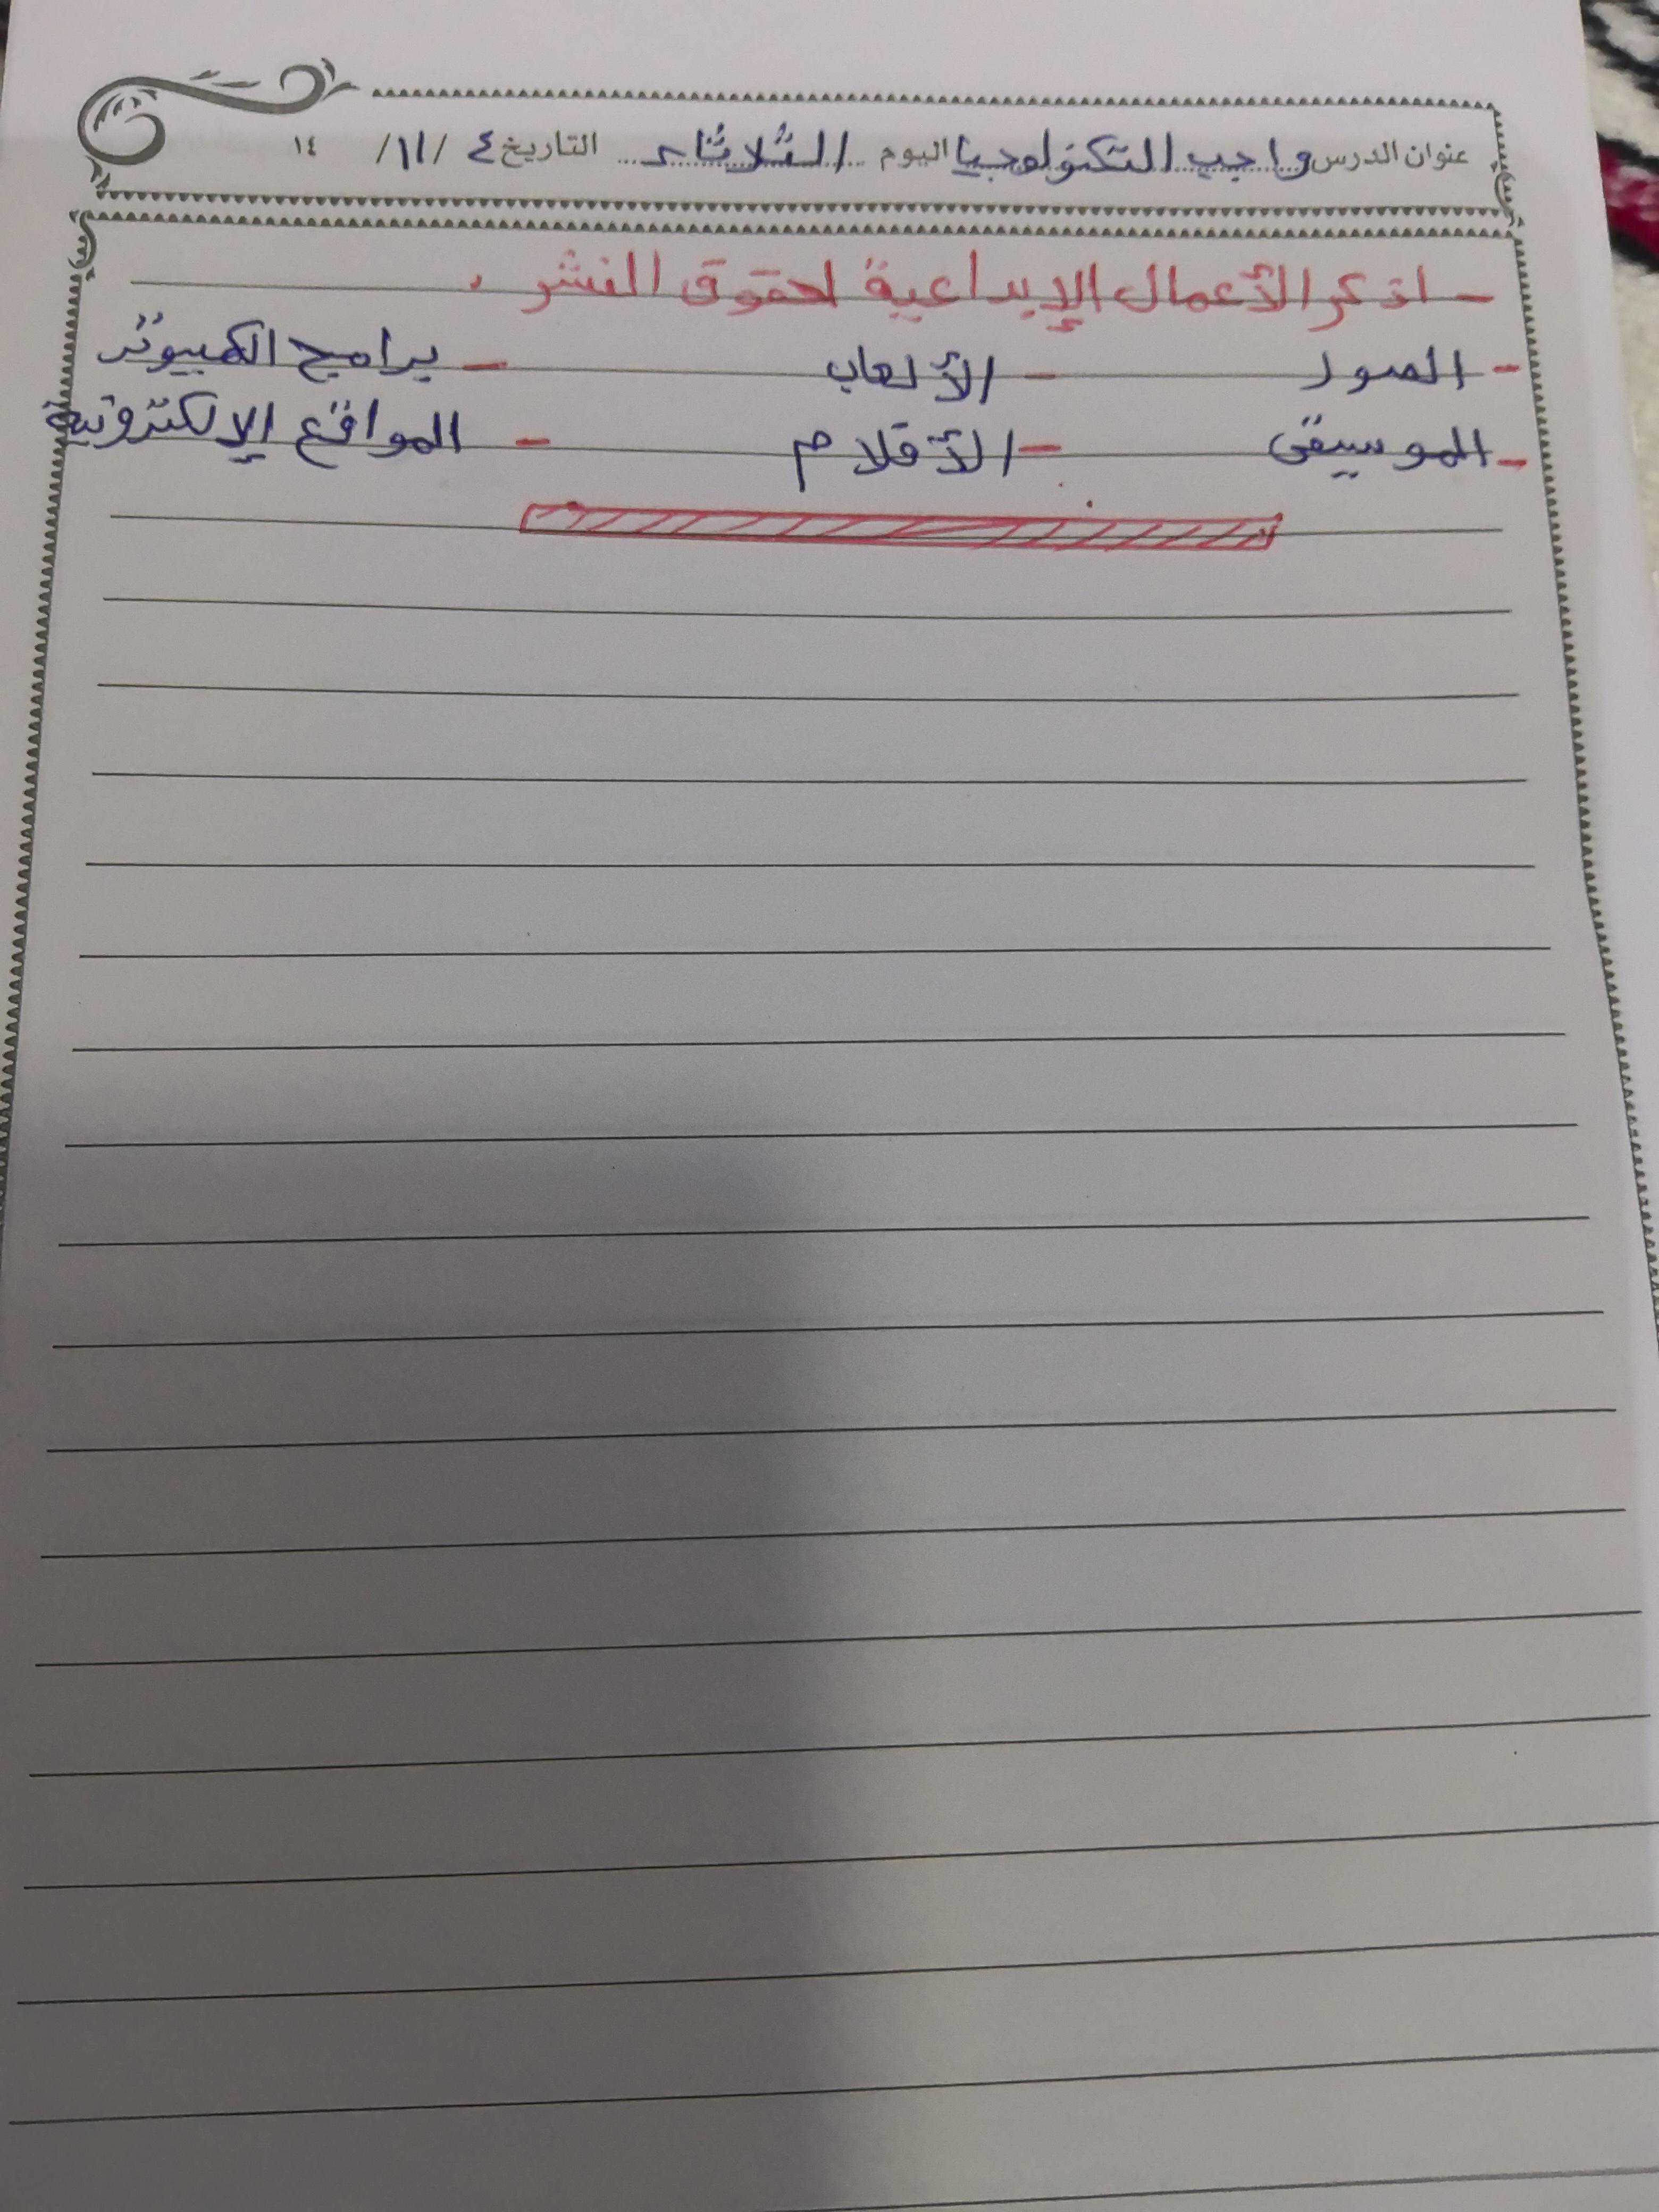 عنوان الدرس واجب التكنولوجيا اليوم الثلاثاء التاريخ ٤ / ١١ / ١٤
- اذكر الأعمال الإبداعية لحقوق النشر .
- الصور - الألعاب - برامج الكمبيوتر
- الموسيقى - الأقلام - المواقع الإلكترونية